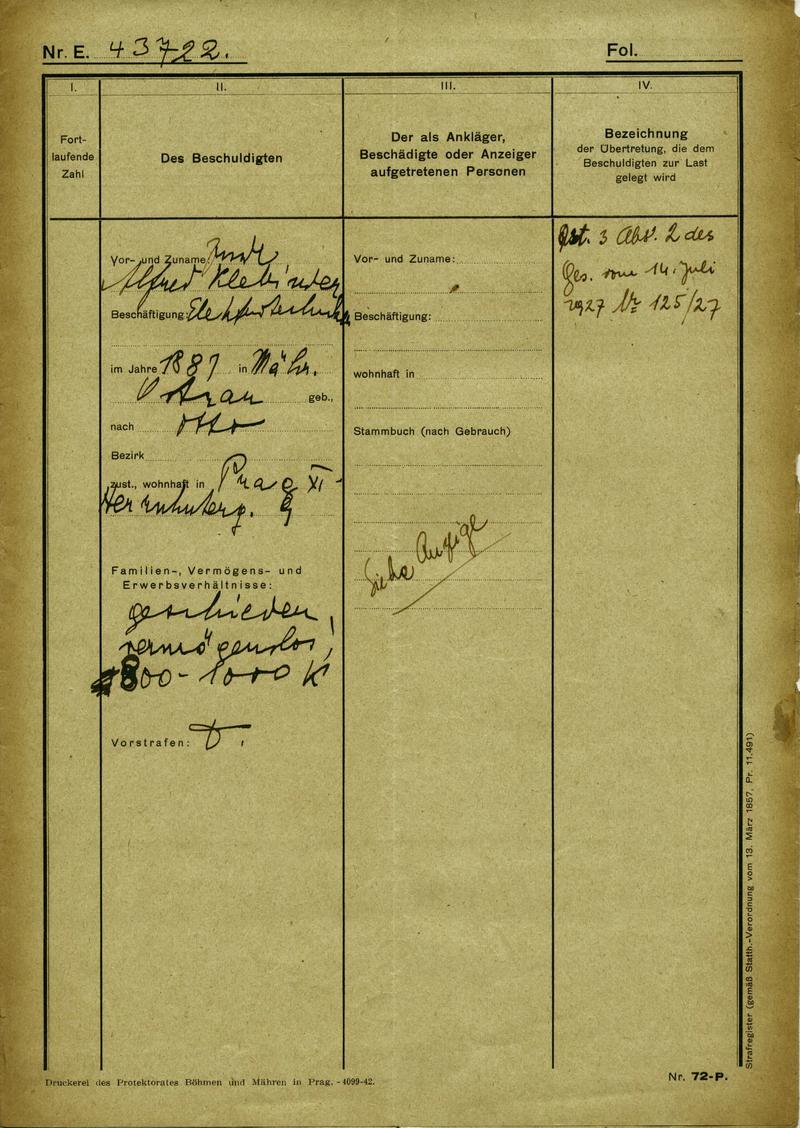 Nr. E. 43722.
Fol.
I.
II.
III.
IV.
Fort-
laufende
Zahl
Des Beschuldigten
Der als Ankläger,
Beschädigte oder Anzeiger
aufgetretenen Personen
Bezeichnung
der Übertretung, die dem
Beschuldigten zur Last
gelegt wird
Vor- und Zuname:
Alfred Klebinder
Beschäftigung:
im Jahre 1887 in Mähr.
Ostrau geb.,
nach Otto
Bezirk
zust., wohnhaft in Prag XI
9
Familien-, Vermögens- und
Erwerbsverhältnisse:
geschieden,
vermögenslos,
800-1000 K
Vorstrafen:
Vor- und Zuname:
Beschäftigung:
wohnhaft in
Stammbuch (nach Gebrauch)
Siehe Anzeige
3 Abs. 2 des
Ges. vom 14. Juli
1927 Nr 125/27
Strafregister (gemäß Statth.-Verordnung vom 13. März 1857, Pr. 11.491)
Druckerei des Protektorates Böhmen und Mähren in Prag. - 4099-42.
Nr. 72-P.